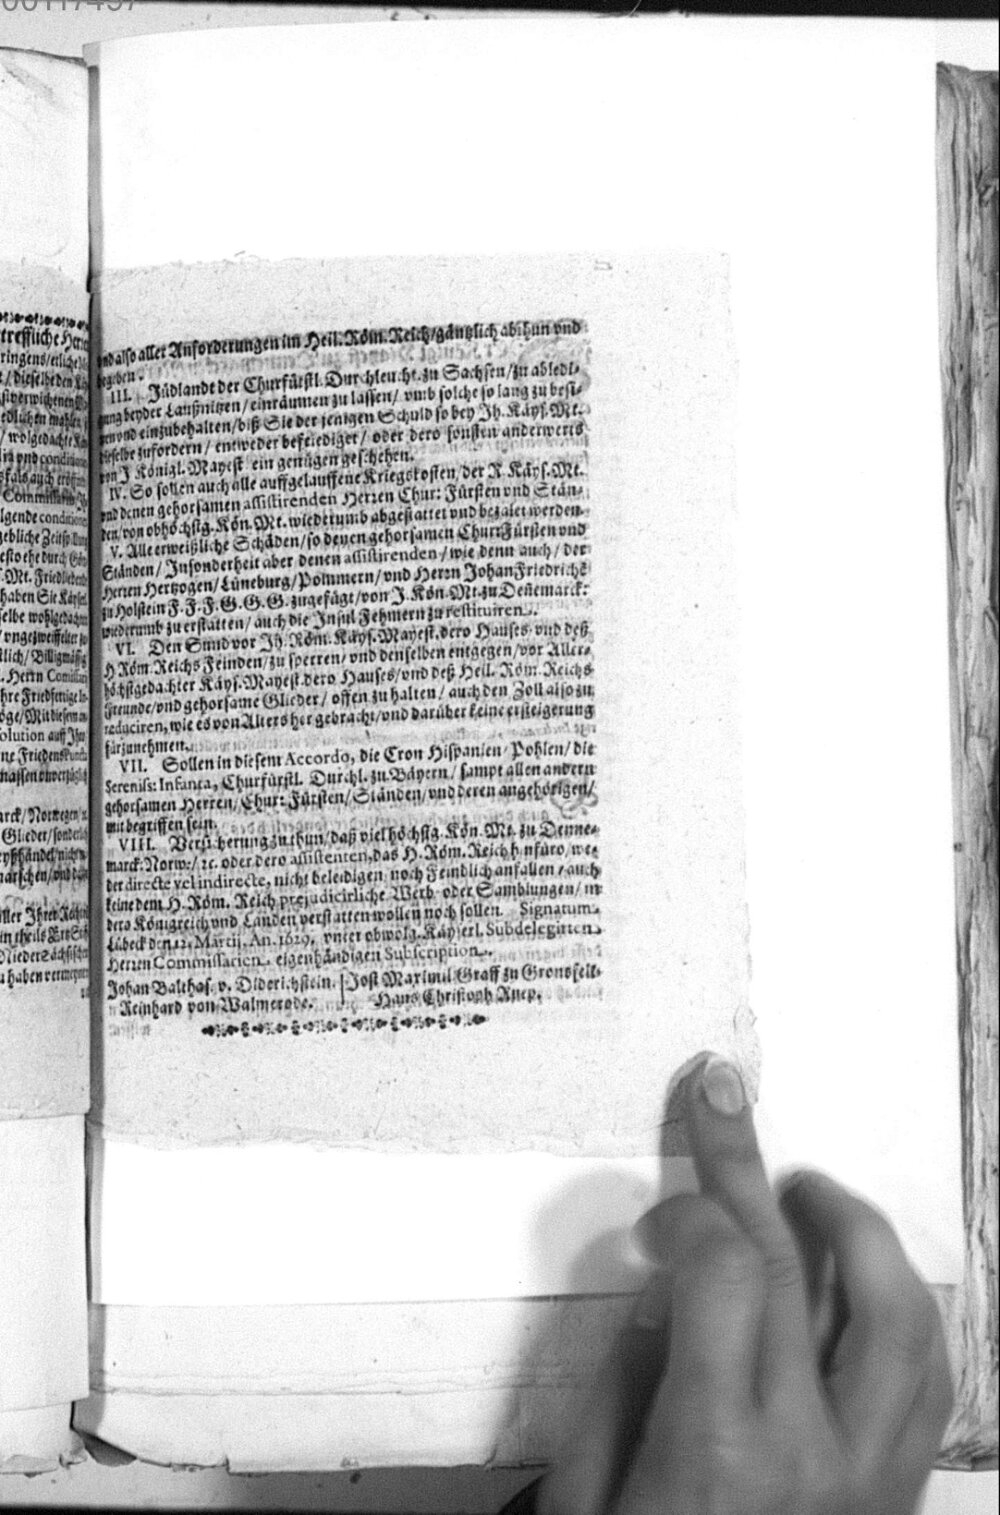 00117457
treffliche Herrn
ringens/etliche
/dieselbe den
verwichenen
edlichen
/ wolgedachte
und conditiones
als auch eröffn
Commissar
lgende conditiones
gebliche
esto ehe durch
Mt. Friedliebende
haben Sie Käysel
selbe wohlgedachten
/ vngezweiffelter
tlich/ Billigmässig
. Herrn Comissari
hre Friedfertige
öge/ Mit diesem
olution auff Ihr
ne Friedens Punct
massen unverzüglich
arck/ Norwegen/
Glieder/ sonderlich
nicht
marschen/ vnd
aller Ihrer
in theils
Nieder Sächsischen
haben
vnd also aller Anforderungen im Heil. Röm. Reich/ gäntzlich abthun vnd
begeben.
III. Jüdlandt der Churfürstl. Durchleucht. zu Sachsen/ zu abledi-
gung beyder Laußnitzen/ einräumen zu lassen/ vmb solche so lang zu besi-
tzen vnd einzubehalten/ biß Sie der jenigen Schuld so bey Ih. Käys. Mt.
dieselbe zufordern/ entweder befriediget/ oder dero sonsten anderwerts
von J Königl. Mayest ein genügen geschehen.
IV. So sollen auch alle auffgelauffene Kriegskosten/ der R. Käys. Mt.
vnd denen gehorsamen assistirenden Herren Chur: Fürsten vnd Stän-
den/ von obhöchstg. Kön. Mt. wiederumb abgestattet vnd bezalet werden.
V. Alle erweißliche Schäden/ so denen gehorsamen Chur: Fürsten vnd
Ständen/ Insonderheit aber denen assistirenden/ wie denn auch/ der
Herren Hertzogen/ Lüneburg/ Pommern/ vnd Herrn Johan Friedrichē
zu Holstein F. F. F. G. G. G. zugefügt/ von J. Kön. Mt. zu Deñemarck:
wiederumb zu erstatten/ auch die Insul Fehmern zu restituiren.
VI. Den Sund vor Ih. Röm. Käys. Mayest. dero Hauses vnd deß
H. Röm. Reichs Feinden/ zu sperren/ vnd denselben entgegen/ vor Aller-
höchstgedachter Käys. Mayest. dero Hauses/ vnd deß Heil. Röm. Reichs
Freunde/ vnd gehorsame Glieder/ offen zu halten/ auch den Zoll also zu
reduciren, wie es von Alters her gebracht/ vnd darüber keine ersteigerung
fürzunehmen.
VII. Sollen in diesem Accordo, die Cron Hispanien/ Pohlen/ die
Sereniss: Infanta, Churfürstl. Durchl. zu Bäyern/ sampt allen andern
gehorsamen Herren/ Chur: Fürsten/ Ständen/ vnd deren angehörigen/
mit begriffen sein.
VIII. Versicherung zu thun/ daß viel höchstg. Kön. Mt. zu Denne-
marck: Norw:/ ꝛc. oder dero assistenten, das H. Röm. Reich hinfüro/ we-
der directe vel indirecte, nicht beleidigen/ noch Feindlich anfallen/ auch
keine dem H. Röm. Reich prejudicirliche Werb- oder Samblungen/ in
dero Königreich vnd Landen verstatten wollen noch sollen. Signatum.
Lübeck den 12. Martij. An. 1629. vnter obwolg. Käyserl. Subdelegirten
Herren Commissarien. eigenhändigen Subscription.
Johan Balthas. v. Diderichstein. Jost Maximil Graff zu Gronsfelt.
Reinhard von Walmerode. Hans Christoph Ruep.